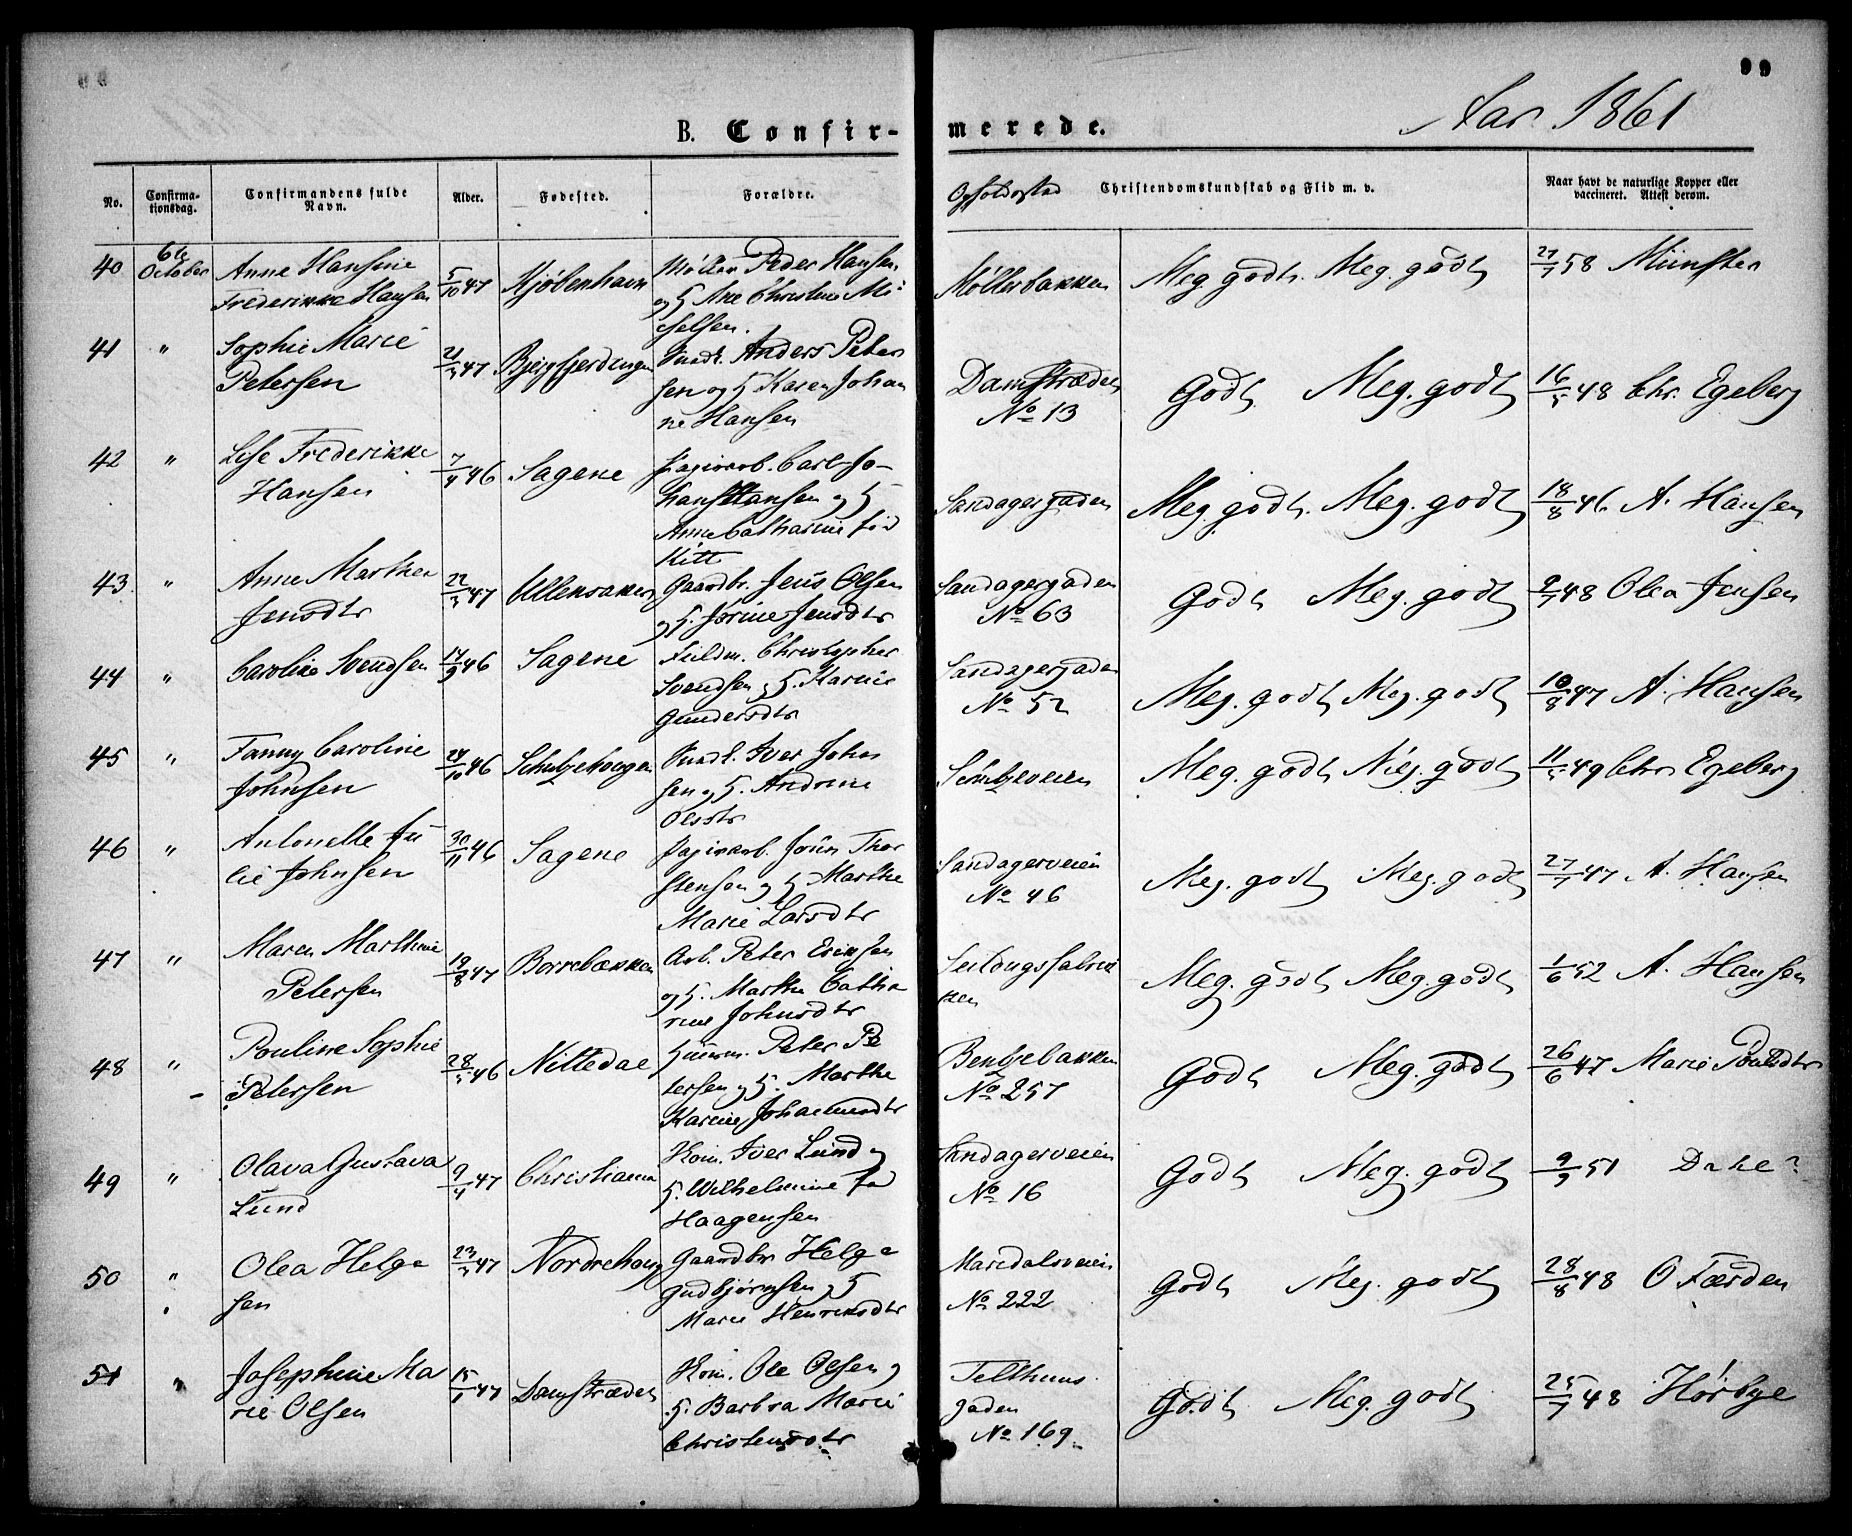 99
Aar 1861
B. Confir-
merede.
No.
Confirma-
tionsdag.
Confirmandens fulde
Navn.
Alder.
Fødested.
Forældre.
Opholdsstad
Christendomskundskab og Flid m. v.
Naar havt de naturlige Kopper eller
vaccineret. Attest derom.
40
6te
October
Anne Hansine
Frederikke Hansen
5/10 47
Kjøbenhavn
Møller Peder Hansen
og H. Ane Christine Mi-
chelsen.
Møllerbakken
Meg godt. Meg. godt
27/7 58 Münster
41
"
Sophie Marie
Petersen
21/3 47
Bjergfjerdingen
Snedk. Anders Peter
sen og H. Karen Johan
ne Hansen
Damstrædet
No 13
Godt Meg. godt
16/5 48 Chr. Egeberg
42
"
Lise Frederikke
Hansen
7/4 46
Sagene
Papirarb. Carl Jo-
han Hansen og H
Anne Catharine fød
Kitt
Sandagergaden
Meg. godt. Meg. godt
18/8 46 A. Hansen
43
"
Anne Marthea
Jensdtr
22/3 47
Ullensaker
Gaardbr. Jens Olsen
og H. Jørine Jensdtr
Sandagergaden
No 63
Godt Meg. godt
2/7 48 Olea Jensen
44
"
Caroline Svendsen
17/9 46
Sagene
Fuldm. Christopher
Svendsen og H. Karine
Gundersdtr
Sandagergaden
No 52
Meg. godt Meg. godt
10/8 47 A. Hansen
45
"
Fanny Caroline
Johnsen
24/10 46
Schultzehougen
Snedk. Iver John
sen og H. Andrine
Olsdtr
Meg. godt Meg. godt
11/5 49 Chr Egeberg
46
"
Antonette Ju-
lie Johnsen
30/11 46
Sagene
Papirarb. John Thor
stensen og H Marthe
Marie Larsdtr
Sandagerveien
No 46
Meg. godt Meg. godt
27/7 47 A. Hansen
47
"
Maren Marthine
Petersen
19/8 47
Borrebækken
Arb. Peter Eriksen
og H. Marthe Catha
rine Johnsdtr
Seildugsfabrik
ken
Meg. godt Meg. godt
1/6 52 A. Hansen
48
"
Pouline Sophie
Petersen
28/3 46
Nittedal
Huusm. Peter Pe
tersen og H. Marthe
Karine Johannesdtr
Bentsebakken
No 257
Godt Meg. godt
26/6 47 Marie Poulsdtr
49
"
Olava Gustava
Lund
9/4 47
Christiania
Kom. Iver Lund og
H. Wilhelmine fød
Haagensen
Sandagerveien
No 16
Godt Meg. godt
9/9 51
50
"
Olea Helge
sen
23/3 47
Nordrehoug
Gaardbr Helge
Gudbjørnsen og H
Marie Henriksdtr
Maridalsveien
No 222
Godt Meg. godt
28/8 48 O Færden
51
"
Josephine Ma
rie Olsen
15/1 47
Damstrædet
Kom. Ole Olsen og
H. Barbra Marie
Christensdtr
Telthuus
gaden
No 169
Godt Meg. godt
25/7 48 Hørbye